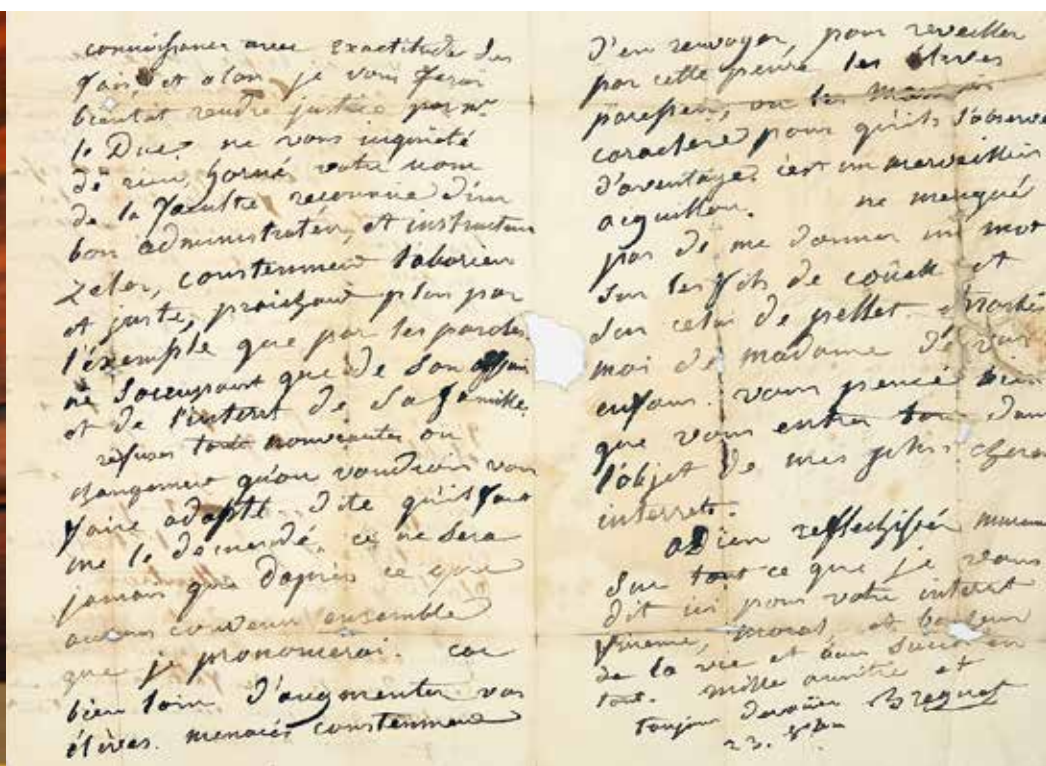 connoissance avec exactitude des
fais, et alon je vous ferai
bientot rendre justice par mr
le Duc. ne vous inquieté
de rien, formé votre nom
de la faculté reconnue d'un
bon administrateur, et instructeur
zeler, constenment laborieu
et juste, praichant plus par
l'exemple que par les paroles
ne s'occupant que de son affair
et de l'interet de sa famille.
refuser tout nouveautes ou
changement qu'on voudrois vous
faire adopté dite qu'il faut
me le demandé. ce ne sera
jamais que d'apres ce que
aurons convenu ensemble
que je prononcerai. car
bien loin d'augmenter vos
éleves. menacés constenment
d'en renvoyer, pour reveiller
par cette peure les éleves
paressen, ou les mauvais
caractere pour qu'ils s'observe
d'aventage, c'est un merveilleux
aiguillon. ne menqué
pas de me donner un mot
sur les fils de couëk et
sur celui de pellet
moi de madame de vos
enfans. vous pencé bien
que vous entrer tous dans
l'objet de mes plus chers
interrets.
adieu reflechissé
sur tout ce que je vous
dit ici pour votre interet
moral et bonheur
de la vie et
tout. mille amitié et
toujour Breguet
23.